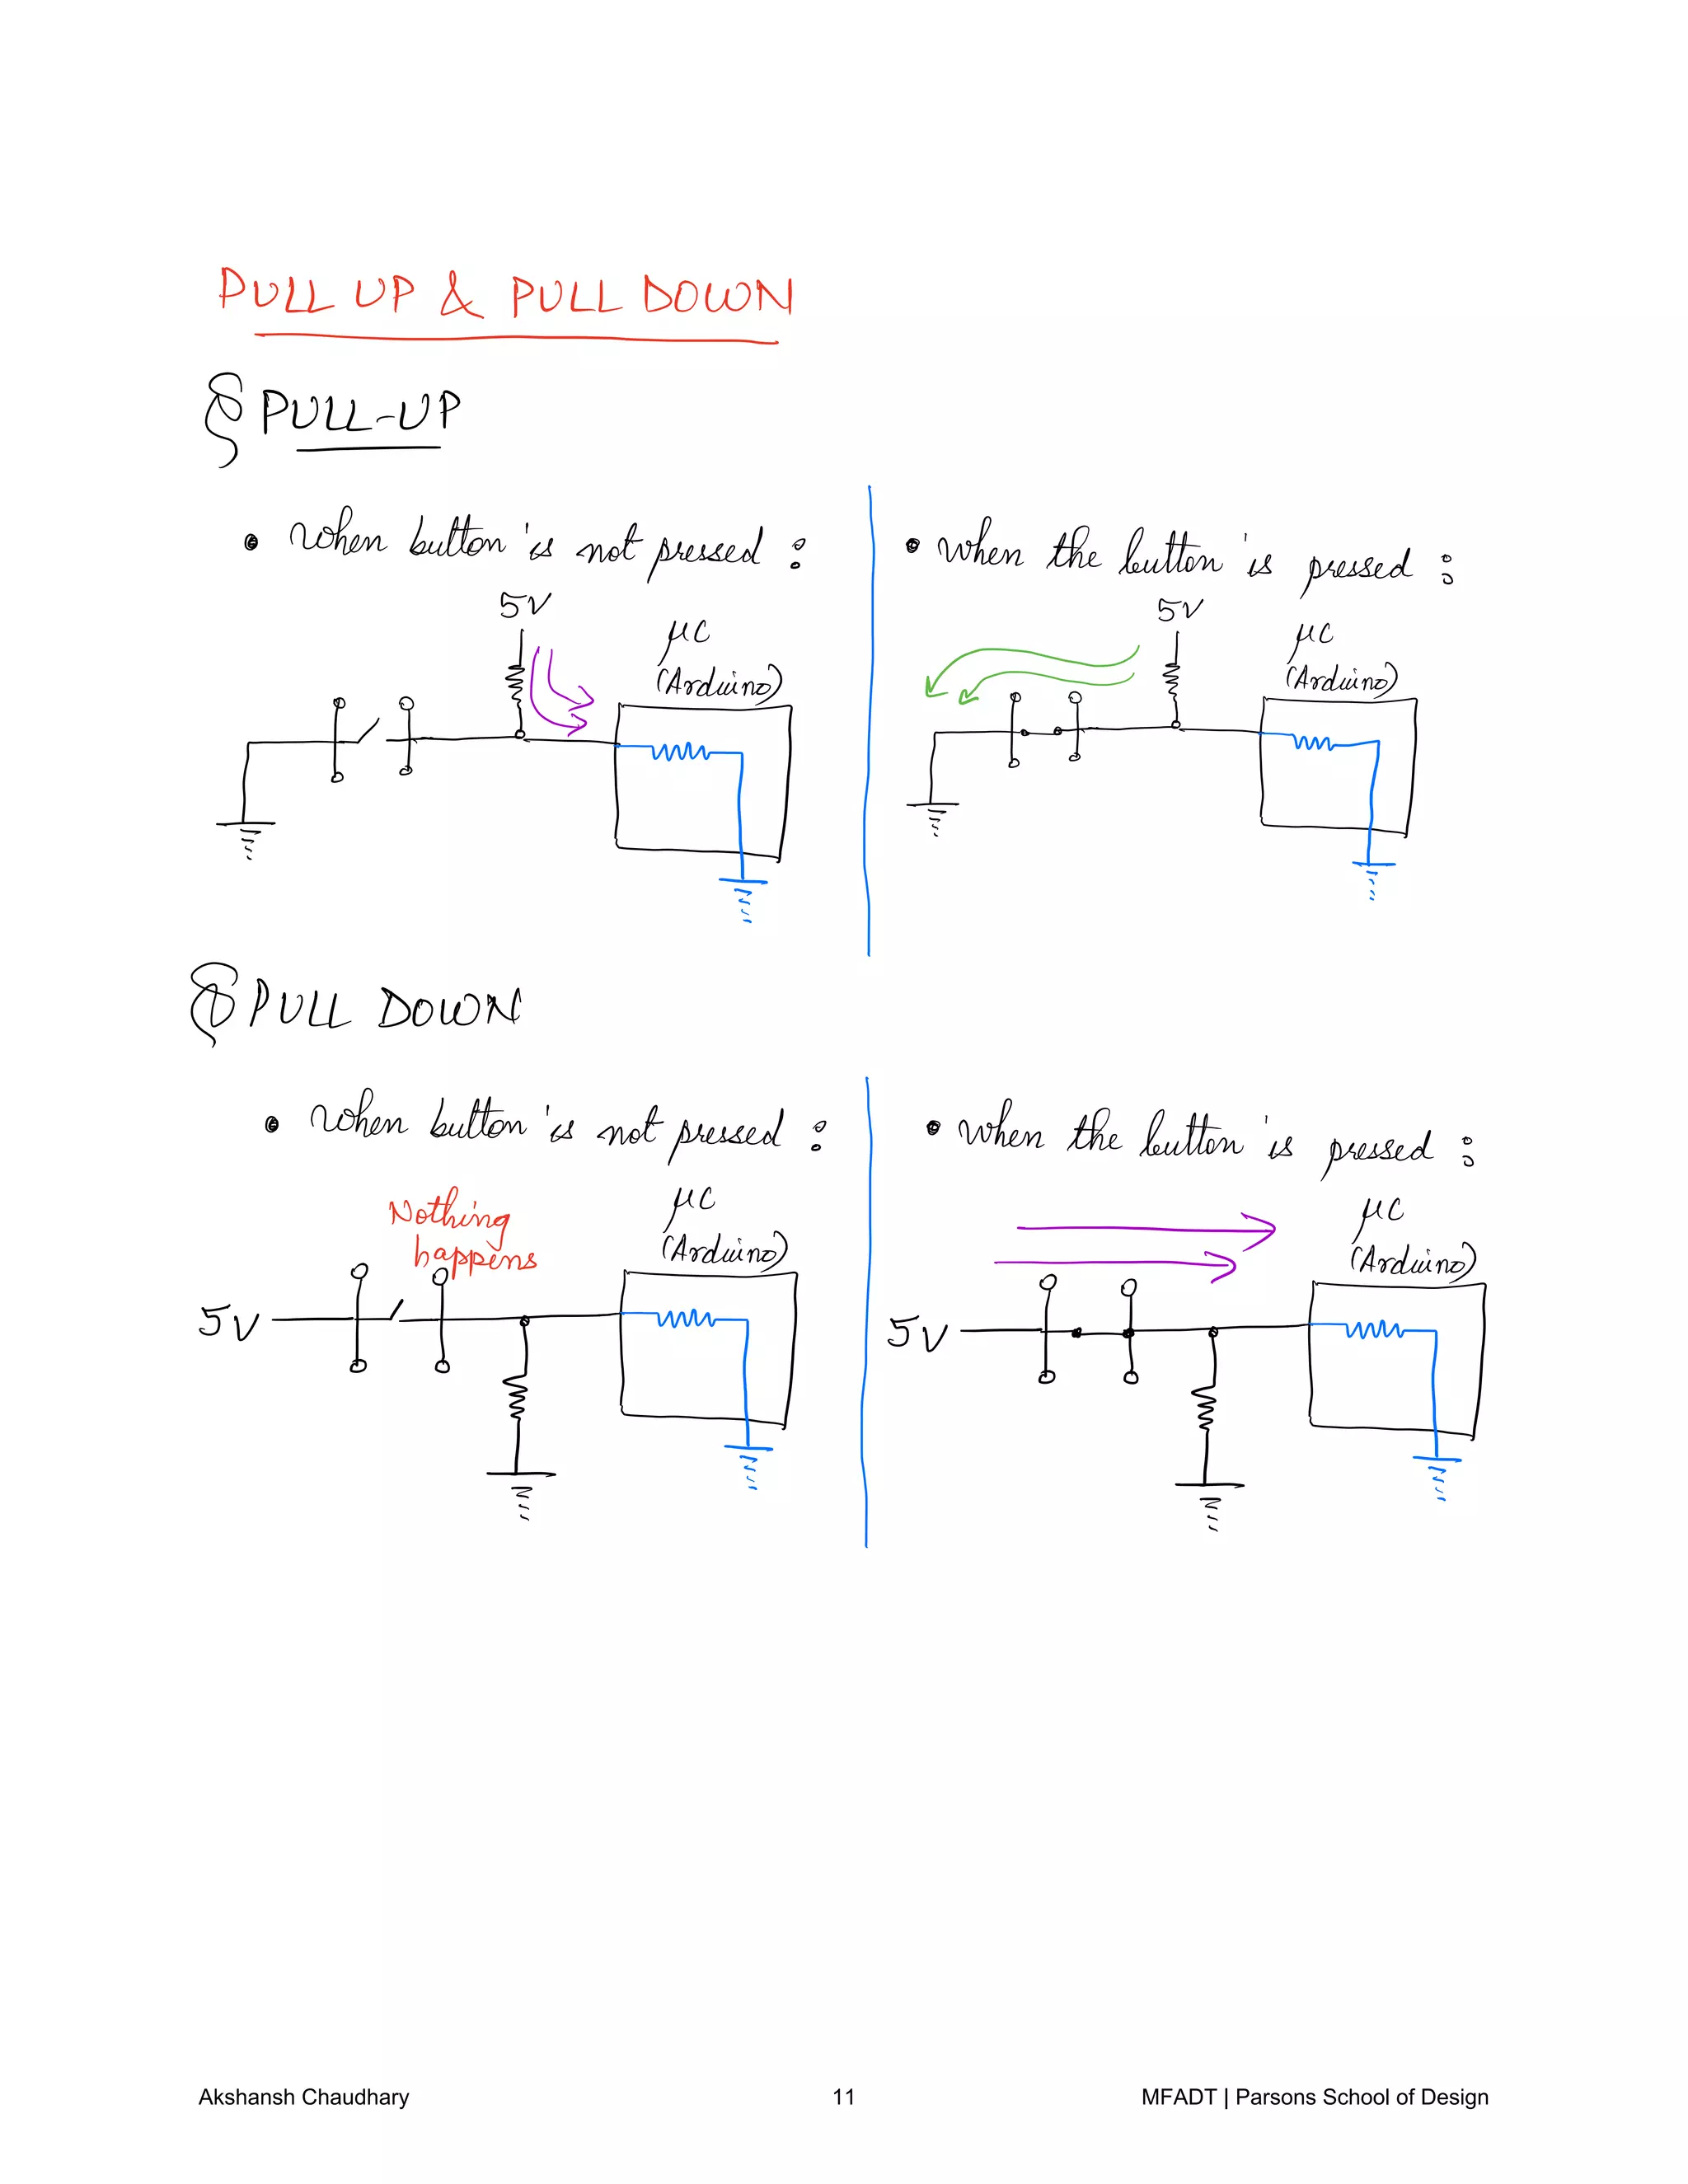 PULL UP & PULL DOWN
§ PULL-UP
• When button is not pressed :
• when the button is pressed :
5V
μC
(Arduino)
5V
μC
(Arduino)
§ PULL DOWN
• When button is not pressed :
• when the button is pressed :
Nothing
happens
μC
(Arduino)
5V
μC
(Arduino)
5V
Akshansh Chaudhary
11
MFADT | Parsons School of Design